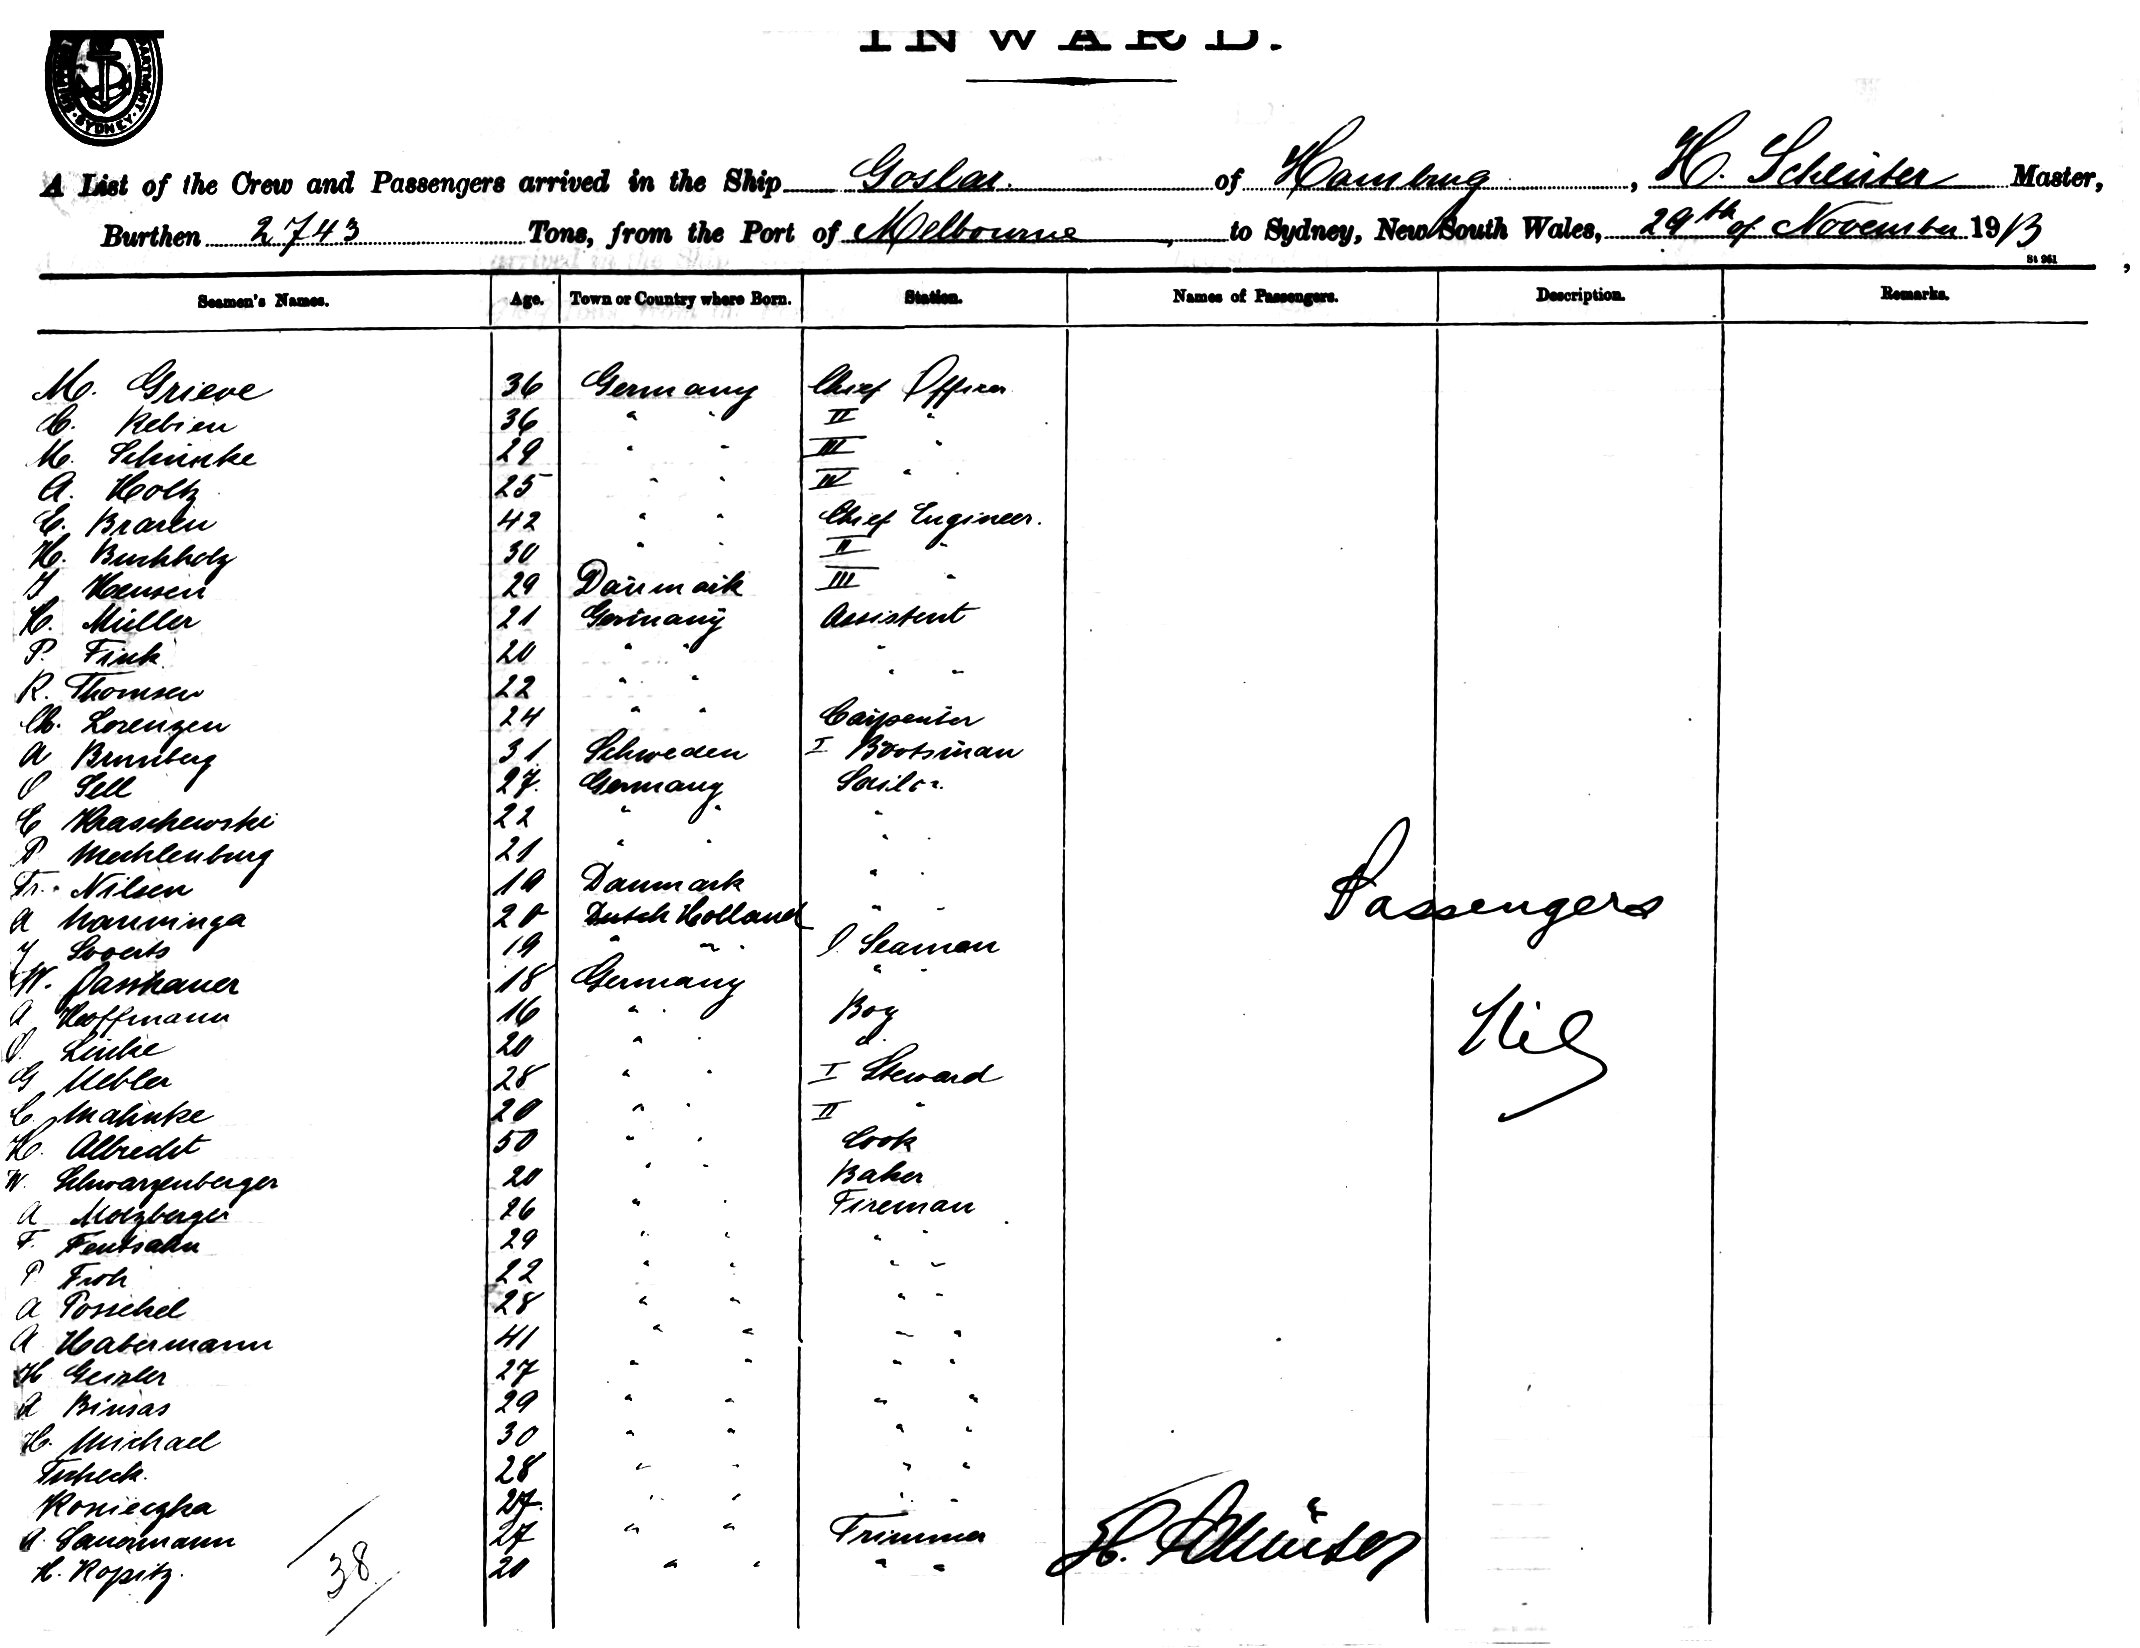 INWARD.
SYDNEY
A List of the Crew and Passengers arrived in the Ship Goslar. of Hamburg, H. Schlüter Master,
Burthen 2743 Tons, from the Port of Melbourne, to Sydney, New South Wales, 29th of November 1913
St 961
Seamen's Names. Age. Town or Country where Born. Station. Names of Passengers. Description. Remarks.
M. Grieve 36 Germany Chief Officer
C. Rebien 36 " " II "
M. 29 " " III "
A. Holtz 25 " " IV "
C. Braren 42 " " Chief Engineer.
H. Buchholz 30 " " II "
J Hensen 29 Danmark III "
H. Müller 21 Germany Assistent
P. Fink 20 " " "
R. Thomsen 22 " " " "
Ch. Lorenzen 24 " " Carpenter
A Brumberg 31 Schweden I Bootsman
O Sell 27. Germany Sailor.
E Kraschewski 22 " " "
P Mecklenburg 21 " " "
Fr. Nilsen 19 Danmark "
A Nanninga 20 Dutch Holland " "
J 19 " " O. Seaman
W. 18 Germany "
A Hoffmann 16 " Boy
O. Linke 20 " " d.
G Uebler 28 " " I Steward
C. Mahnke 20 " " II "
H. Albrecht 50 " " Cook
W. Schwarzenberger 20 " " Baker
A Molzberger 26 " " Fireman
F. Fentsahn 29 " " " "
P Froh 22 " " " "
A Posschel 28 " " " "
A Habermann 41 " " " "
H Geisler 27 " " " "
A Binsas 29 " " " "
H. Michael 30 " " " "
Tscheck. 28 " " " "
Konieczka 27. " " " "
A. 27 " " Trimmer
H. Kopitz. 20 " " " "
38
Passengers
Nil
H. Schlüter